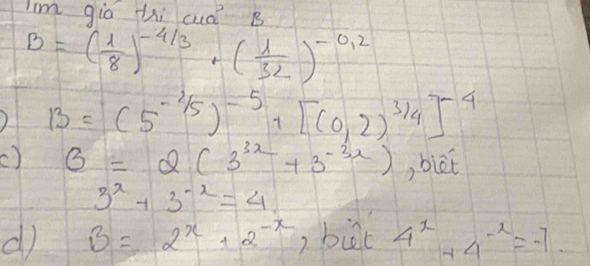 Tìm giá trị của B
B = (1/8)^{-4/3} + (1/32)^{-0,2}
) B = (5^{-2/5})^{-5} + [(0,2)^{3/4}]^{-4}
c) B = 2(3^{3x} + 3^{-3x}), biết
3^x + 3^{-x} = 4
d) B = 2^x + 2^{-x}, biết 4^x + 4^{-x} = -7.